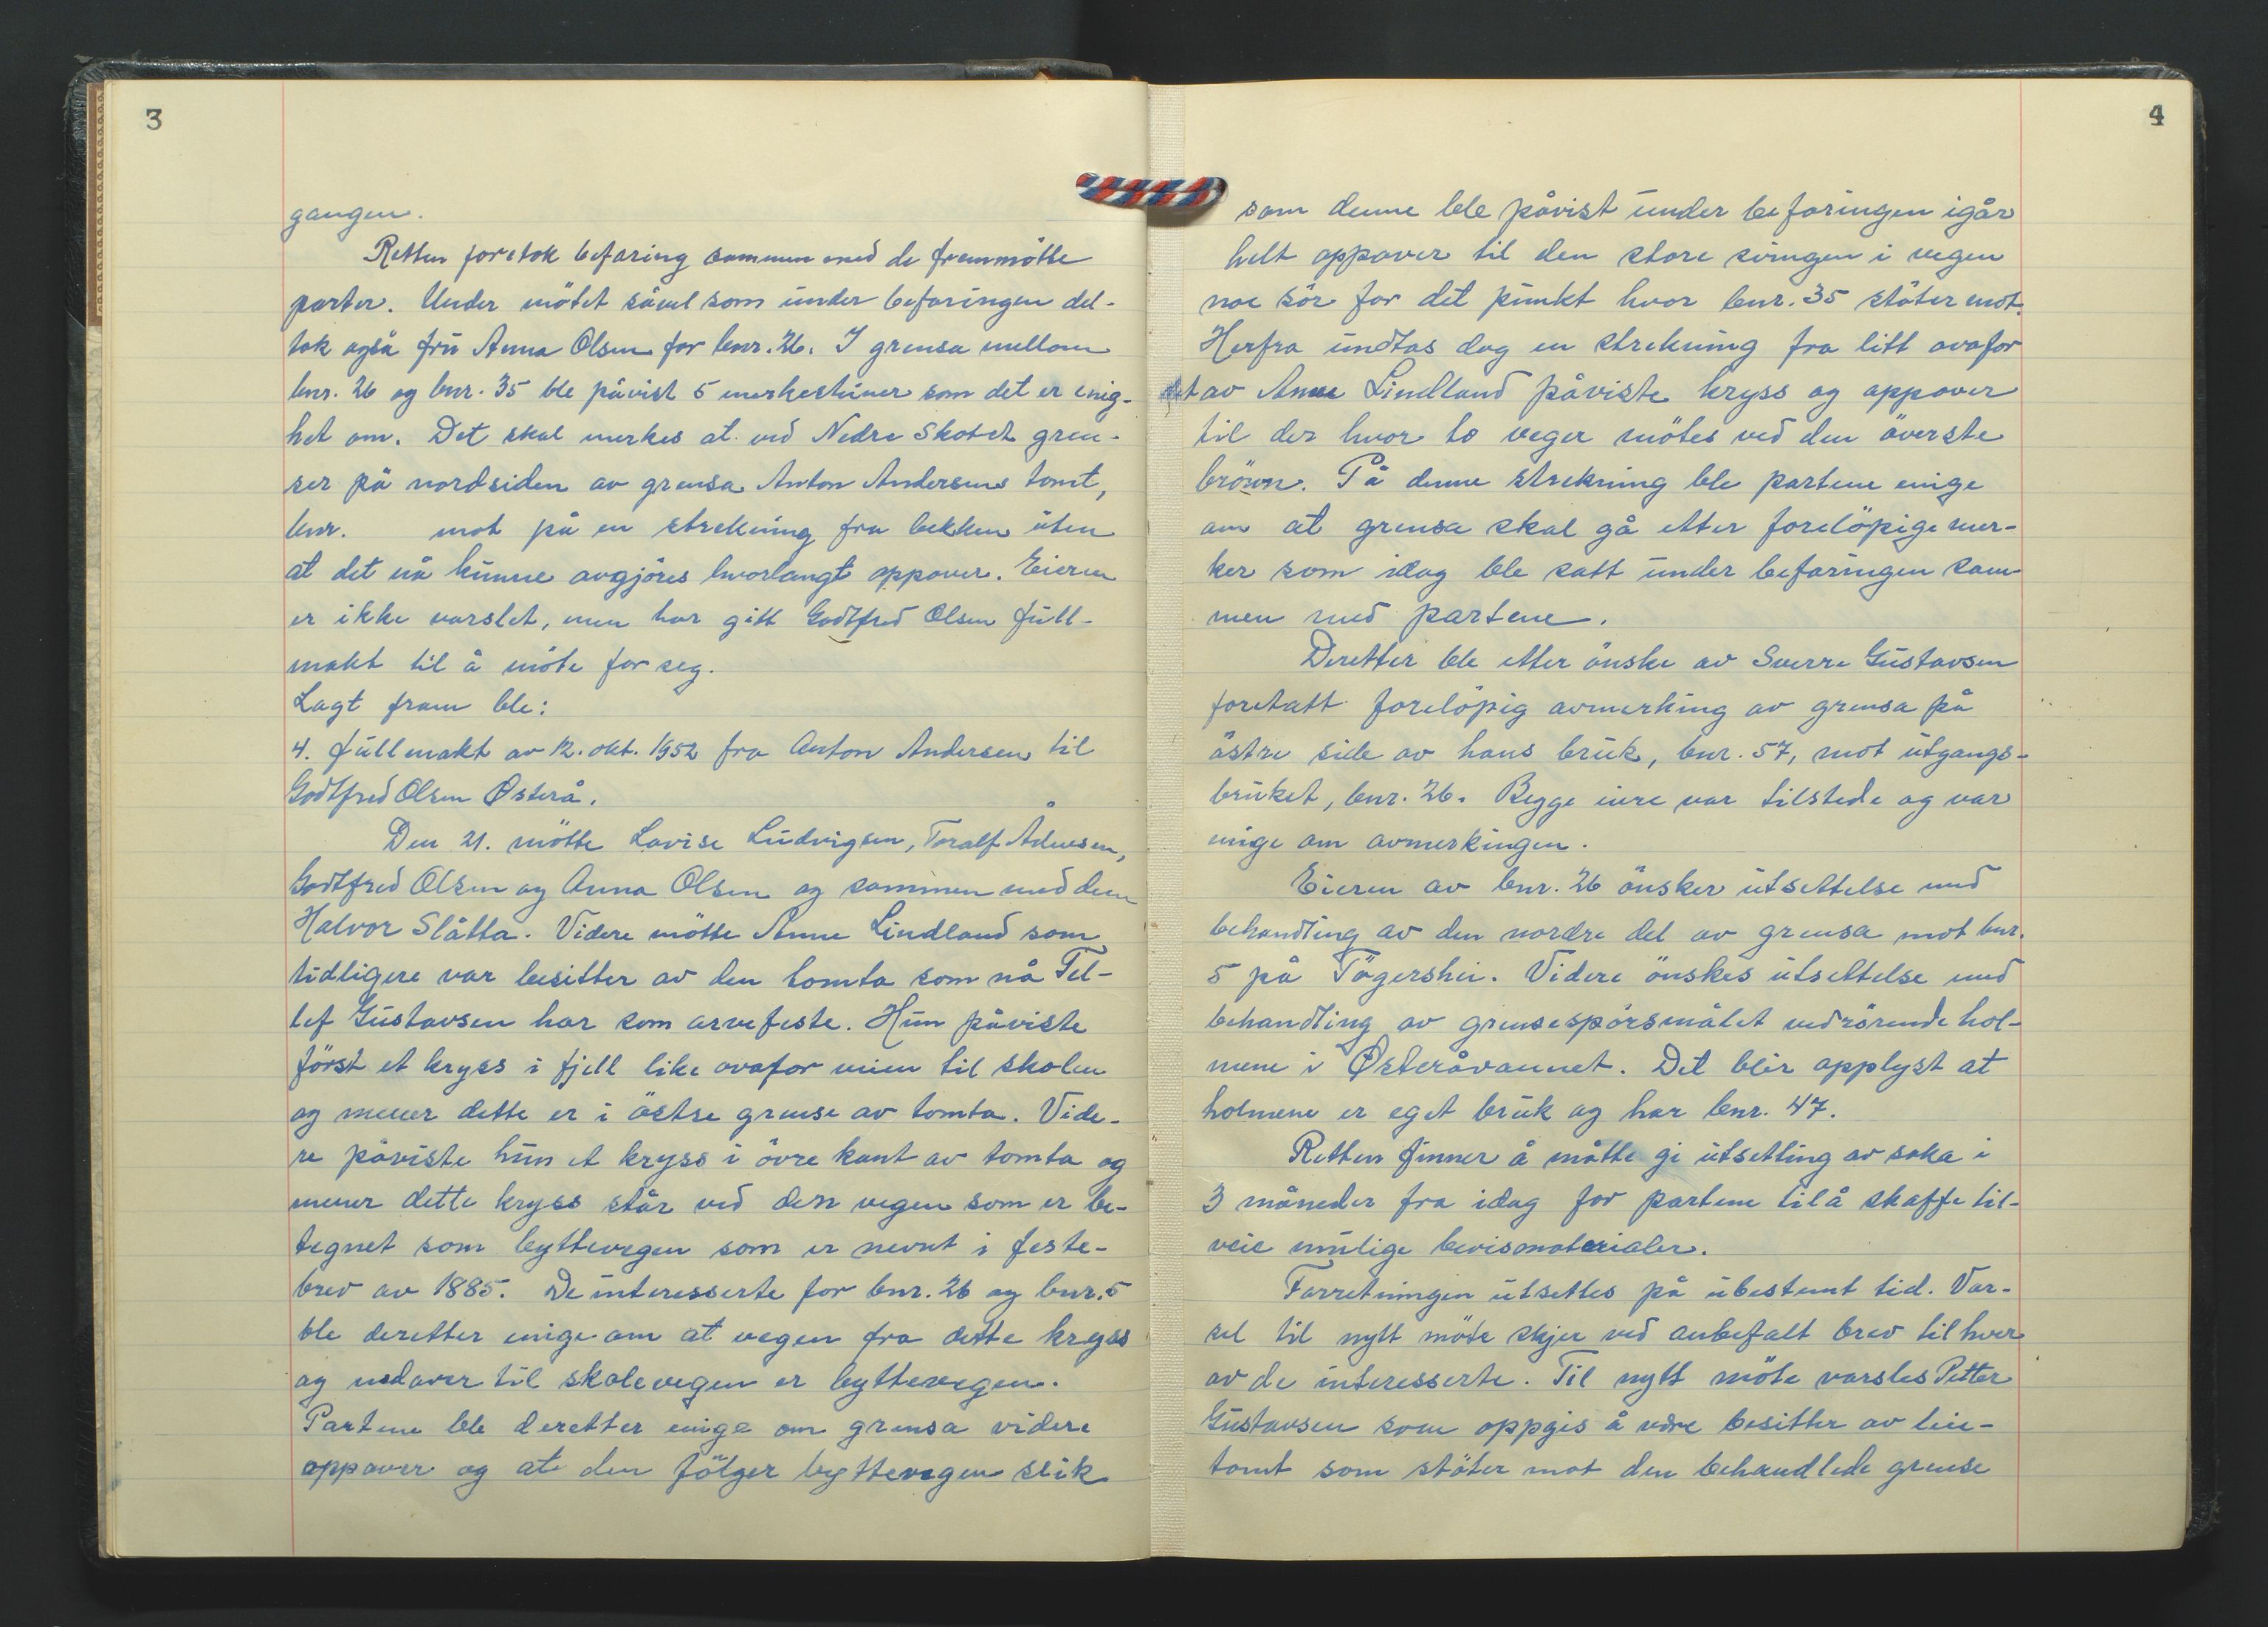 3
gangen.
Retten foretok befaring sammen med de frammötte
parter. Under mötet såvel som under befaringen del-
tok også fru Anna Olsen for bnr. 26. I grensa mellom
bnr. 26 og bnr. 35 ble påvist 5 merkesteiner som det er enig-
het om. Det skal merkes at ved Nedre Skotet gren-
ser på nordsiden av grensa Anton Andersens tomt,
bnr. mot på en strekning fra bekken uten
at det nå kunne avgjöres hvorlangt oppover. Eieren
er ikke varslet, men har gitt Godtfred Olsen full-
makt til å möte for seg.
Lagt fram ble:
4. Fullmakt av 12. okt. 1952 fra Anton Andersen til
Godtfred Olsen Østerå.
Den 21. mötte Lovise Ludvigsen, Toralf Ånesen,
Godtfred Olsen og Anna Olsen og sammen med dem
Halvor Slåtta. Videre mötte Anne Lindland som
tidligere var besitter av den tomta som nå Tel-
lef Gustavsen har som arvefeste. Hun påviste
först et kryss i fjell like ovafor veien til skolen
og mener dette er i östre grense av tomta. Vide-
re påviste hun et kryss i övre kant av tomta og
mener dette kryss står ved den vegen som er be-
tegnet som byttevegen som er nevnt i feste-
brev av 1885. De interesserte for bnr. 26 og bnr. 5
ble deretter enige om at vegen fra dette kryss
og nedover til skolevegen er byttevegen.
Partene ble deretter enige om grensa videre
oppover og at den fölger byttevegen slik
4
som denne ble påvist under befaringen igår
helt oppover til den store svingen i vegen
noe sör for det punkt hvor bnr. 35 stöter mot.
Herfra undtas dog en strekning fra litt ovafor
et av Anne Lindland påviste kryss og oppover
til der hvor to veger mötes ved den överste
bröwn. På denne strekning ble partene enige
om at grensa skal gå etter forelöpige mer-
ker som idag ble satt under befaringen sam-
men med partene.
Deretter ble etter önske av Sverre Gustavsen
foretatt forelöpig avmerking av grensa på
östre side av hans bruk, bnr. 57, mot utgangs-
bruket, bnr. 26. Begge eiere var tilstede og var
enige om avmerkingen.
Eieren av bnr. 26 önsker utsettelse med
behandling av den nordre del av grensa mot bnr.
5 på Tögershei. Videre önskes utsettelse med
behandling av grensespörsmålet vedrörende hol-
mene i Østeråvannet. Det blir opplyst at
holmene er eget bruk og har bnr. 47.
Retten finner å måtte gi utsetting av saka i
3 måneder fra idag for partene til å skaffe til-
veie mulige bevismaterialer.
Forretningen utsettes på ubestemt tid. Var-
sel til nytt möte skjer ved anbefalt brev til hver
av de interesserte. Til nytt möte varsles Petter
Gustavsen som oppgis å være besitter av leie-
tomt som stöter mot den behandlede grense